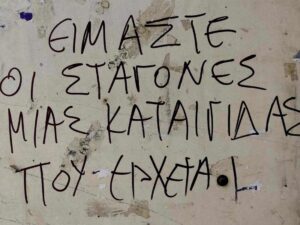 ΕΙΜΑΣΤΕ
ΟΙ ΣΤΑΓΟΝΕΣ
ΜΙΑΣ ΚΑΤΑΙΓΙΔΑΣ
ΠΟΥ ΕΡΧΕΤΑΙ